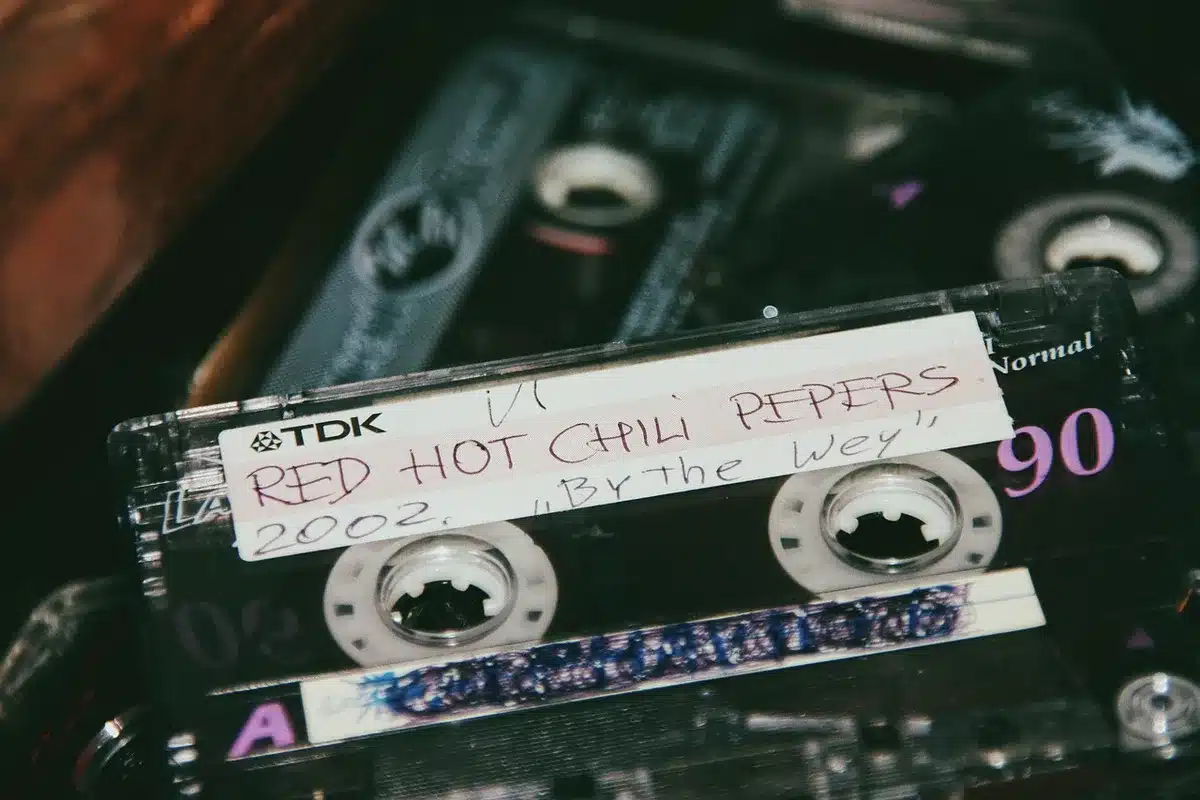 TDK
RED HOT CHiLi PEPERS
2002. „By The Wey”
Normal
90
A